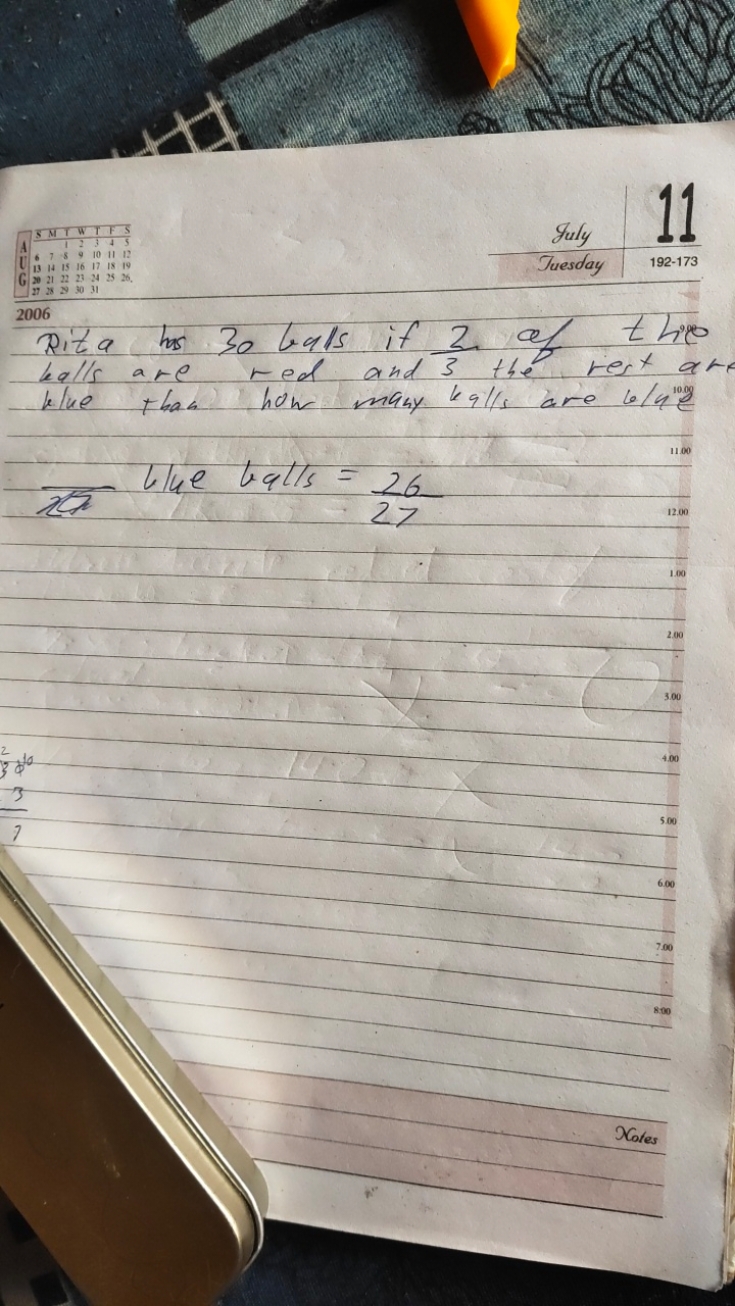 S M T W T F S
AUG
1 2 3 4 5
6 7 8 9 10 11 12
13 14 15 16 17 18 19
20 21 22 23 24 25 26
27 28 29 30 31
July
Tuesday
11
192-173
2006
Rita has 30 balls if 2/3 of the
balls are red and the rest are
blue than how many balls are blue
blue balls = 26/27
9.00
10.00
11.00
12.00
1.00
2.00
3.00
4.00
5.00
6.00
7.00
8:00
3
7
Notes